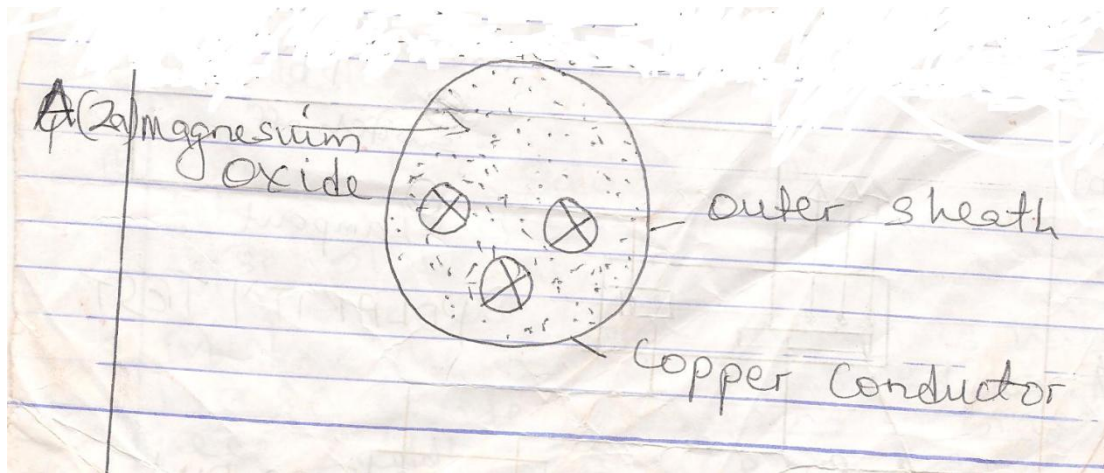 A(2a) magnesuim
oxide
outer sheath
Copper Conductor